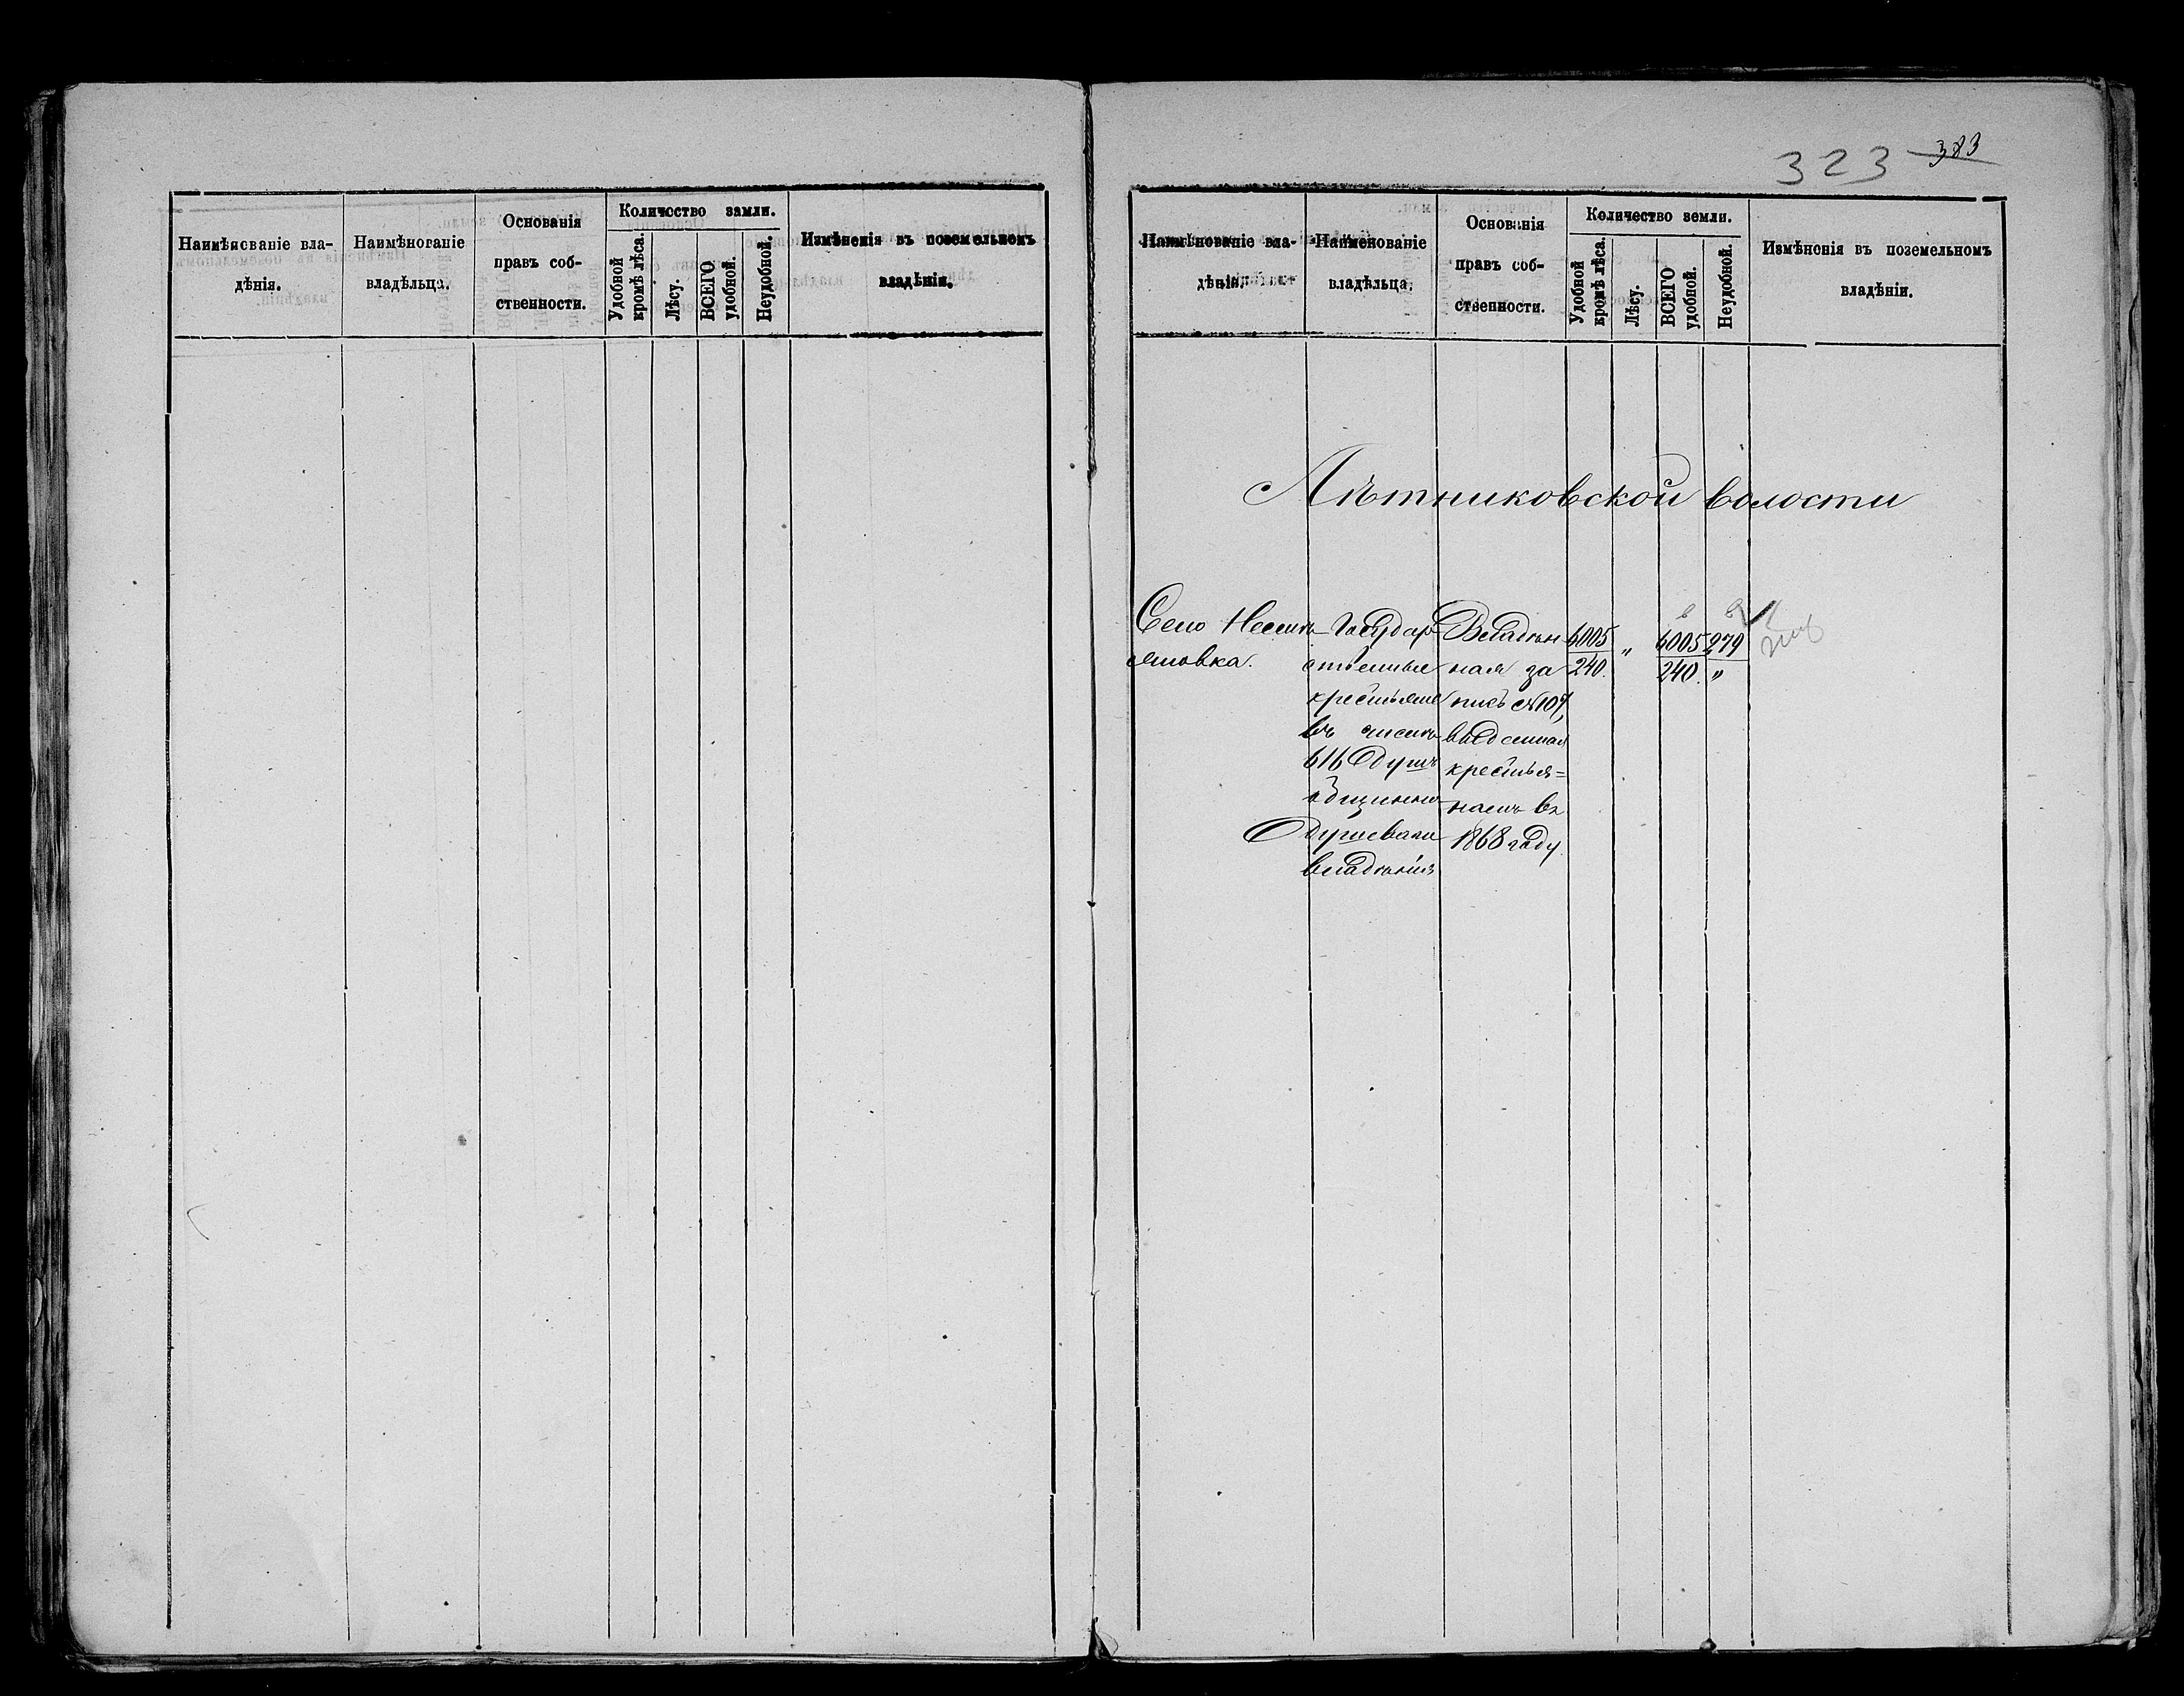 Наимѣнованіе вла-
дѣнія.
Наимѣнованіе
владѣльца.
Основанія
правъ соб-
ственности.
Количество земли.
Удобной
кромѣ лѣса.
Лѣсу.
ВСЕГО
удобной.
Неудобной.
Измѣненія въ поземельномъ
владѣніи.
323 383
Наимѣнованіе вла-
дѣнія.
Наименованіе
владѣльца.
Основанія
правъ соб-
ственности.
Количество земли.
Удобной
кромѣ лѣса.
Лѣсу.
ВСЕГО
удобной.
Неудобной.
Измѣненія въ поземельномъ
владѣніи.
Лѣтниковской волости
Село
Государ
ственные
крестьяне
въ числѣ
616 душъ
общинно
душеваго
владѣнія
Владѣн
ная за
пись №107,
выданная
крестья=
намъ въ
1868 году.
6005
240.
"
6005
240.
279
"